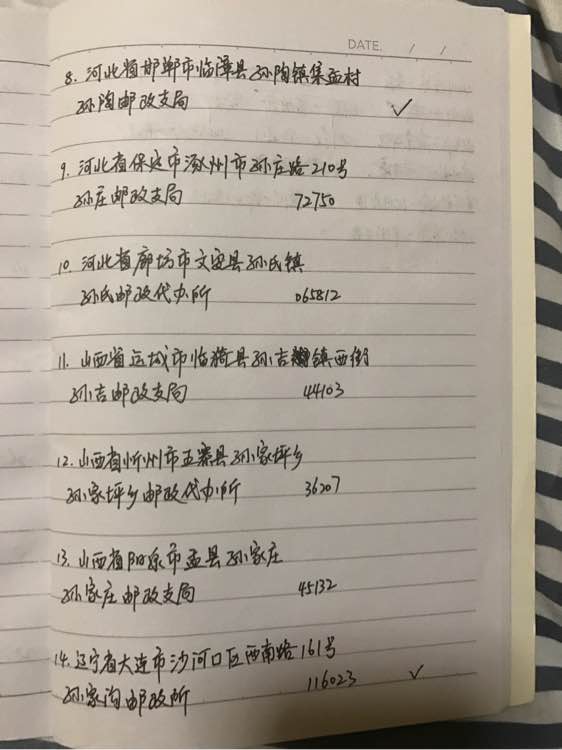 DATE. / /
8. 河北省邯郸市临漳县孙陶镇集孟村
孙陶邮政支局 ✓
9. 河北省保定市涿州市孙庄路210号
孙庄邮政支局 72750
10. 河北省廊坊市文安县孙氏镇
孙氏邮政代办所 065812
11. 山西省运城市临猗县孙吉镇西街
孙吉邮政支局 44103
12. 山西省忻州市五寨县孙家坪乡
孙家坪乡邮政代办所 36207
13. 山西省阳泉市盂县孙家庄
孙家庄邮政支局 45132
14. 辽宁省大连市沙河口区西南路161号
孙家沟邮政所 116023 ✓